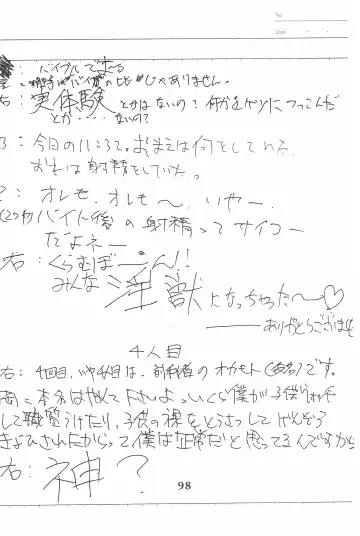 バイブルで来る
の比じゃありません。
右：実体験とかはないの？何かをケツにつっこんだ
とか・・・・ないの？
3：今日の11:32。おまえは何をしている。
おれは射精をしていた。
2：オレも、オレも〜、いやー、
バイト後の射精ってサイコー
だよネー
右：くらむぼーん!!
みんな淫獣になっちゃった〜♡
――ありがとうござい
4人目
右：4回目、いや4人目は、前科者のオカモト(仮名)です。
岡：本名はやめて下さいよ。いくら僕が子供
して職質うけたり、子供の裸をとうさつして
きょひされたからって僕は正常だと思ってるんですから
右：神？
98